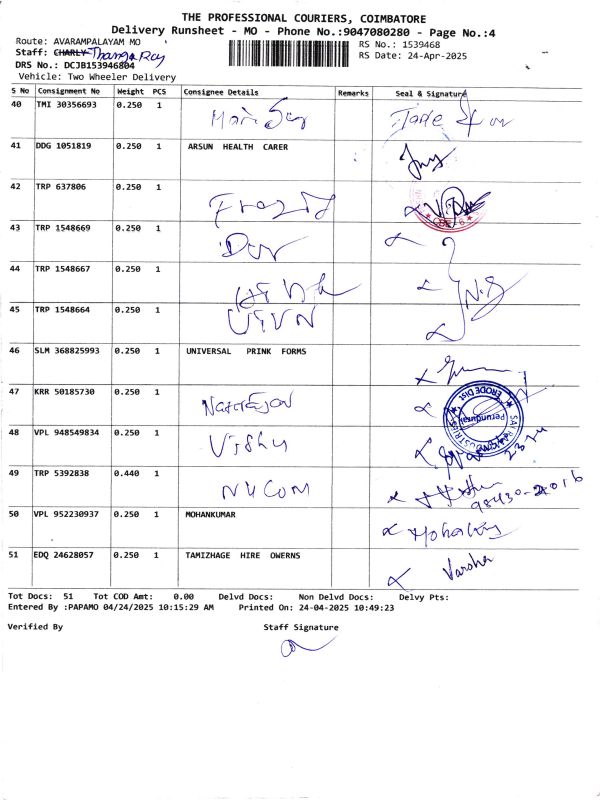 THE PROFESSIONAL COURIERS, COIMBATORE
Delivery Runsheet - MO - Phone No.:9047080280 - Page No.:4
Route: AVARAMPALAYAM MO
RS No.: 1539468
Staff: CHARLY Thanga Raj
RS Date: 24-Apr-2025
DRS No.: DCJB153946804
Vehicle: Two Wheeler Delivery
S No Consignment No Weight PCS Consignee Details Remarks Seal & Signature
40 TMI 30356693 0.250 1
41 DDG 1051819 0.250 1 ARSUN HEALTH CARER
42 TRP 637806 0.250 1
43 TRP 1548669 0.250 1
44 TRP 1548667 0.250 1
45 TRP 1548664 0.250 1
46 SLM 368825993 0.250 1 UNIVERSAL PRINK FORMS
47 KRR 50185730 0.250 1
ERODE Dist.
Perundurai
48 VPL 948549834 0.250 1 Vishu
49 TRP 5392838 0.440 1 NUCOM
50 VPL 952230937 0.250 1 MOHANKUMAR
51 EDQ 24628057 0.250 1 TAMIZHAGE HIRE OWERNS Varsha
Tot Docs: 51 Tot COD Amt: 0.00 Delvd Docs: Non Delvd Docs: Delvy Pts:
Entered By :PAPAMO 04/24/2025 10:15:29 AM Printed On: 24-04-2025 10:49:23
Verified By Staff Signature